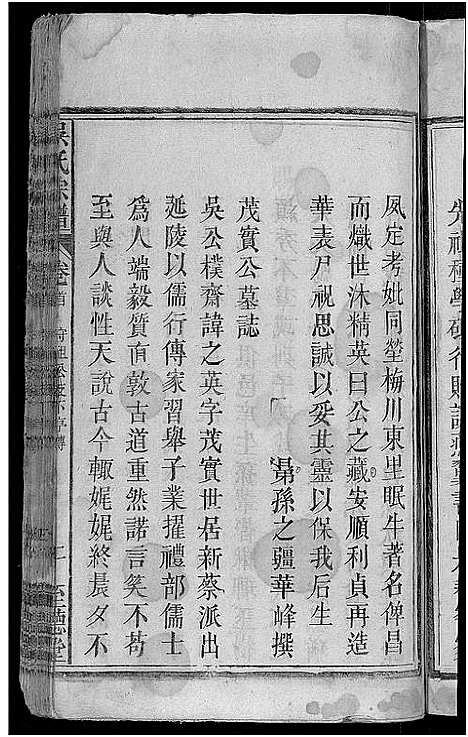 夙定考妣同塋梅川東里眠牛著名俾昌
而熾世沐精英曰公之藏安順利貞再造
華表尸祝思誠以妥其靈以保我后生
曾孫之疆華峰撰
茂實公墓誌
吳公樸齋諱之英字茂實世居新蔡派出
延陵以儒行傳家習舉子業擢禮部儒士
為人端毅質直敦古道重然諾言笑不苟
至與人談性天說古今輙娓娓終晨夕不
吳氏宗譜 卷首 二 至德堂